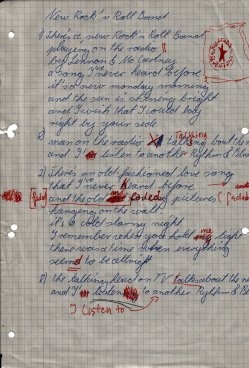 New Rock'n Roll Band
1) There's a new Rock'n Roll Band
playing on the radio
by Lennon & Mc Cartney
a Song I've never heard before
it's a new monday morning
and the sun is shining bright
and I wish that I could lay
right by your side
2) man on the radio talking about the
and I listen to another Rythm & Blu
3) There's an old fashioned love song
that I've never heard before
and the old faded pictures (faded
hanging on the wall
it's a cold starry night
I remember when you hold me tight
there was a time when everything
seemed to be allright
4) the talking head on TV talks about the ne
and I listen to another Rythm & Blu
I listen to